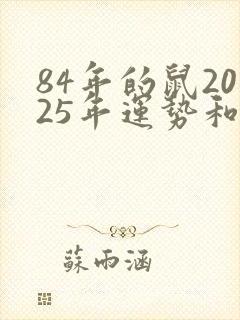 84年的鼠20
25年運势和
蘇雨涵